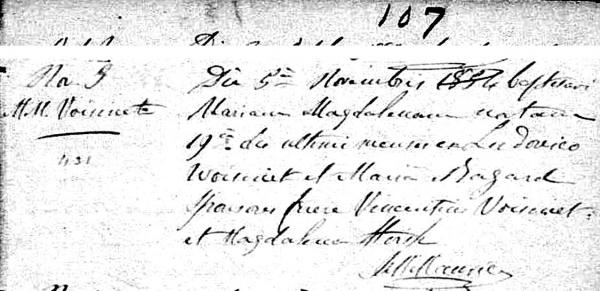 107
No. 3
M. M. Voisinet
Die 5ta Novembris 1854 baptizavi
Mariam Magdalenam natam
19a die ultimi mensis ex Ludovico
Voisinet et Maria Bagard
Sponsores fuere Vincentius Voisinet
et Magdalena